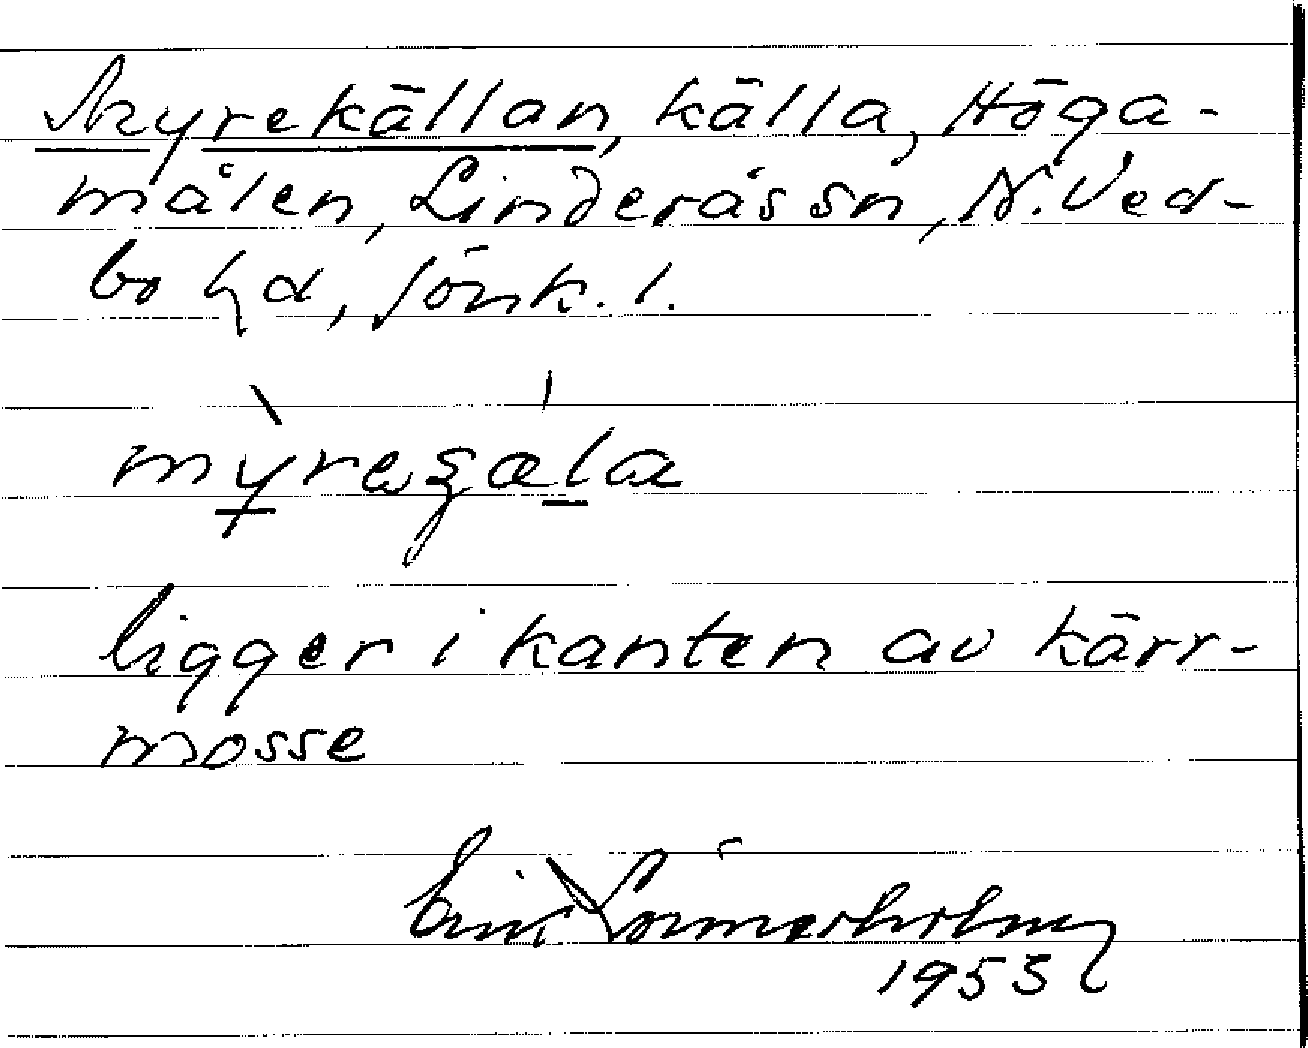 Myrekällan, källa, Höga-
målen, Linderås sn, N. Ved-
bo hd, Jönk. l.
mỳ̱regǽ̱la
ligger i kanten av kärr-
mosse
Erik Sönnerholm
1953